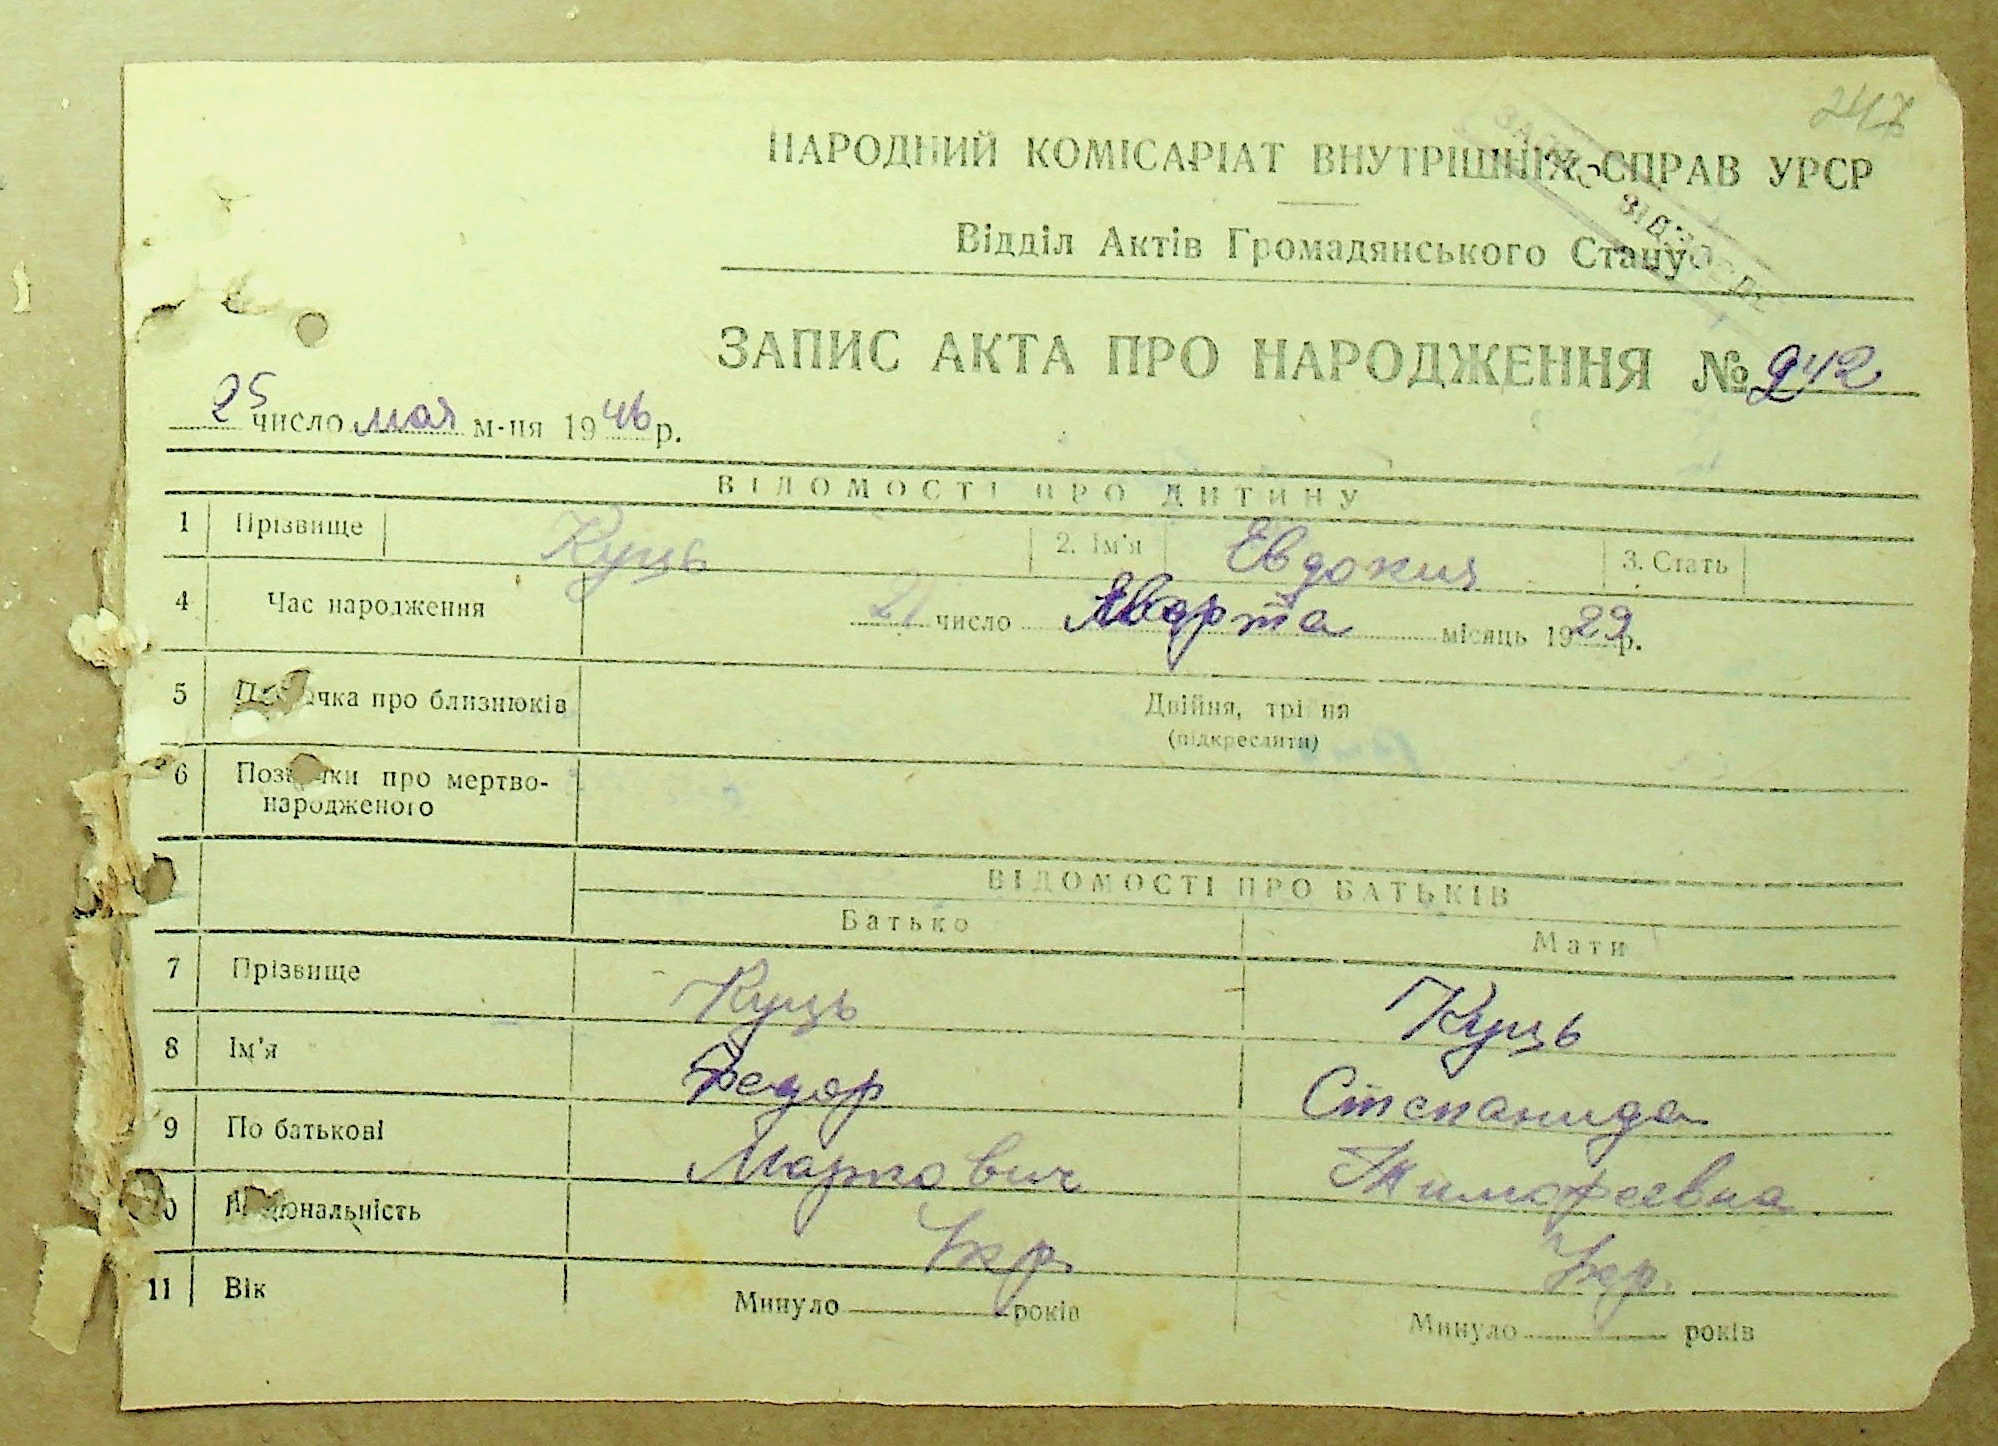 247
НАРОДНИЙ КОМІСАРІАТ ВНУТРІШНІХ СПРАВ УРСР
Відділ Актів Громадянського Стану
ЗАПИС АКТА ПРО НАРОДЖЕННЯ № 242
25 число мая м-ця 1946 р.
ВІДОМОСТІ ПРО ДИТИНУ
1 Прізвище Куць 2. Ім'я Евдокия 3. Стать
4 Час народження 21 число Марта місяць 1929 р.
5 Позначка про близнюків Двійня, трійня
(підкреслити)
6 Позначки про мертво-
народженого
ВІДОМОСТІ ПРО БАТЬКІВ
Батько Мати
7 Прізвище Куць Куць
8 Ім'я Федор Степанида
9 По батькові Маркович Тимофеевна
10 Національність Укр Укр.
11 Вік Минуло років Минуло років